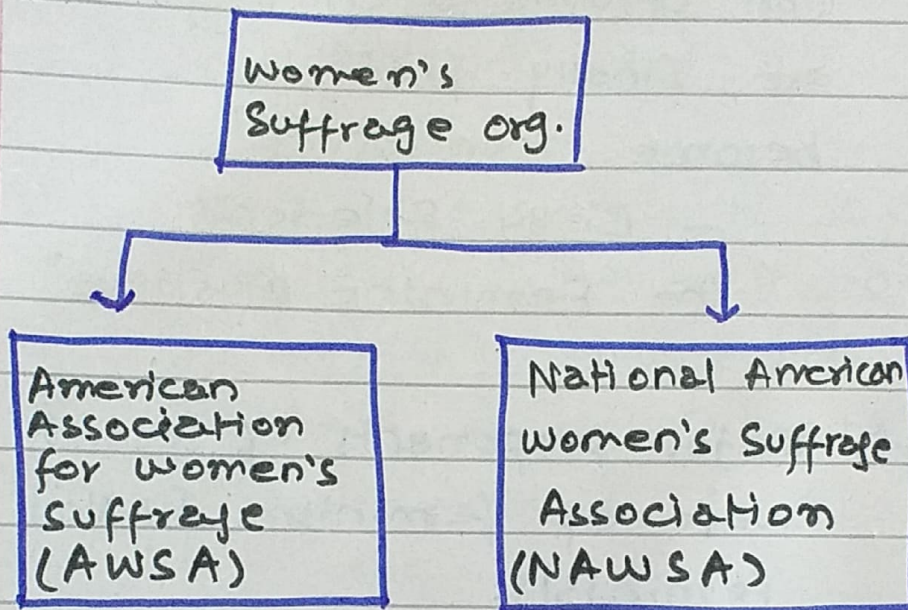 Women's
Suffrage org.
American
Association
for women's
Suffrage
(AWSA)
National American
women's Suffrage
Association
(NAWSA)